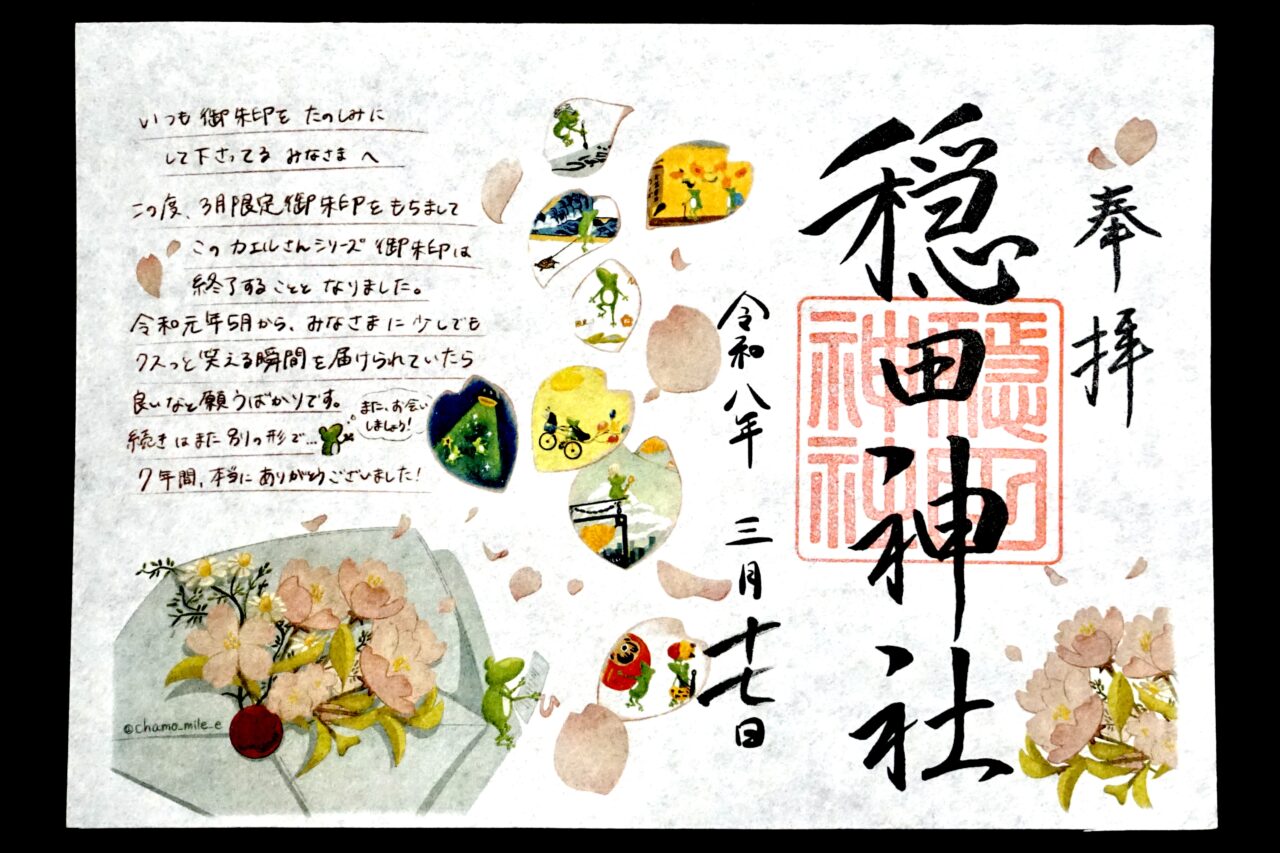 奉拝
穏田神社
穏田
神社
令和八年 三月 十七日
いつも御朱印を たのしみに
して下さってる みなさまへ
この度、3月限定御朱印をもちまして
このカエルさんシリーズ 御朱印は
終了することと なりました。
令和元年5月から、みなさまに少しでも
クスっと笑える瞬間を届けられていたら
良いなと願うばかりです。
続きはまた別の形で…
また、お会い
しましょう!
7年間、本当にありがとうございました!
@chamo_mile_e